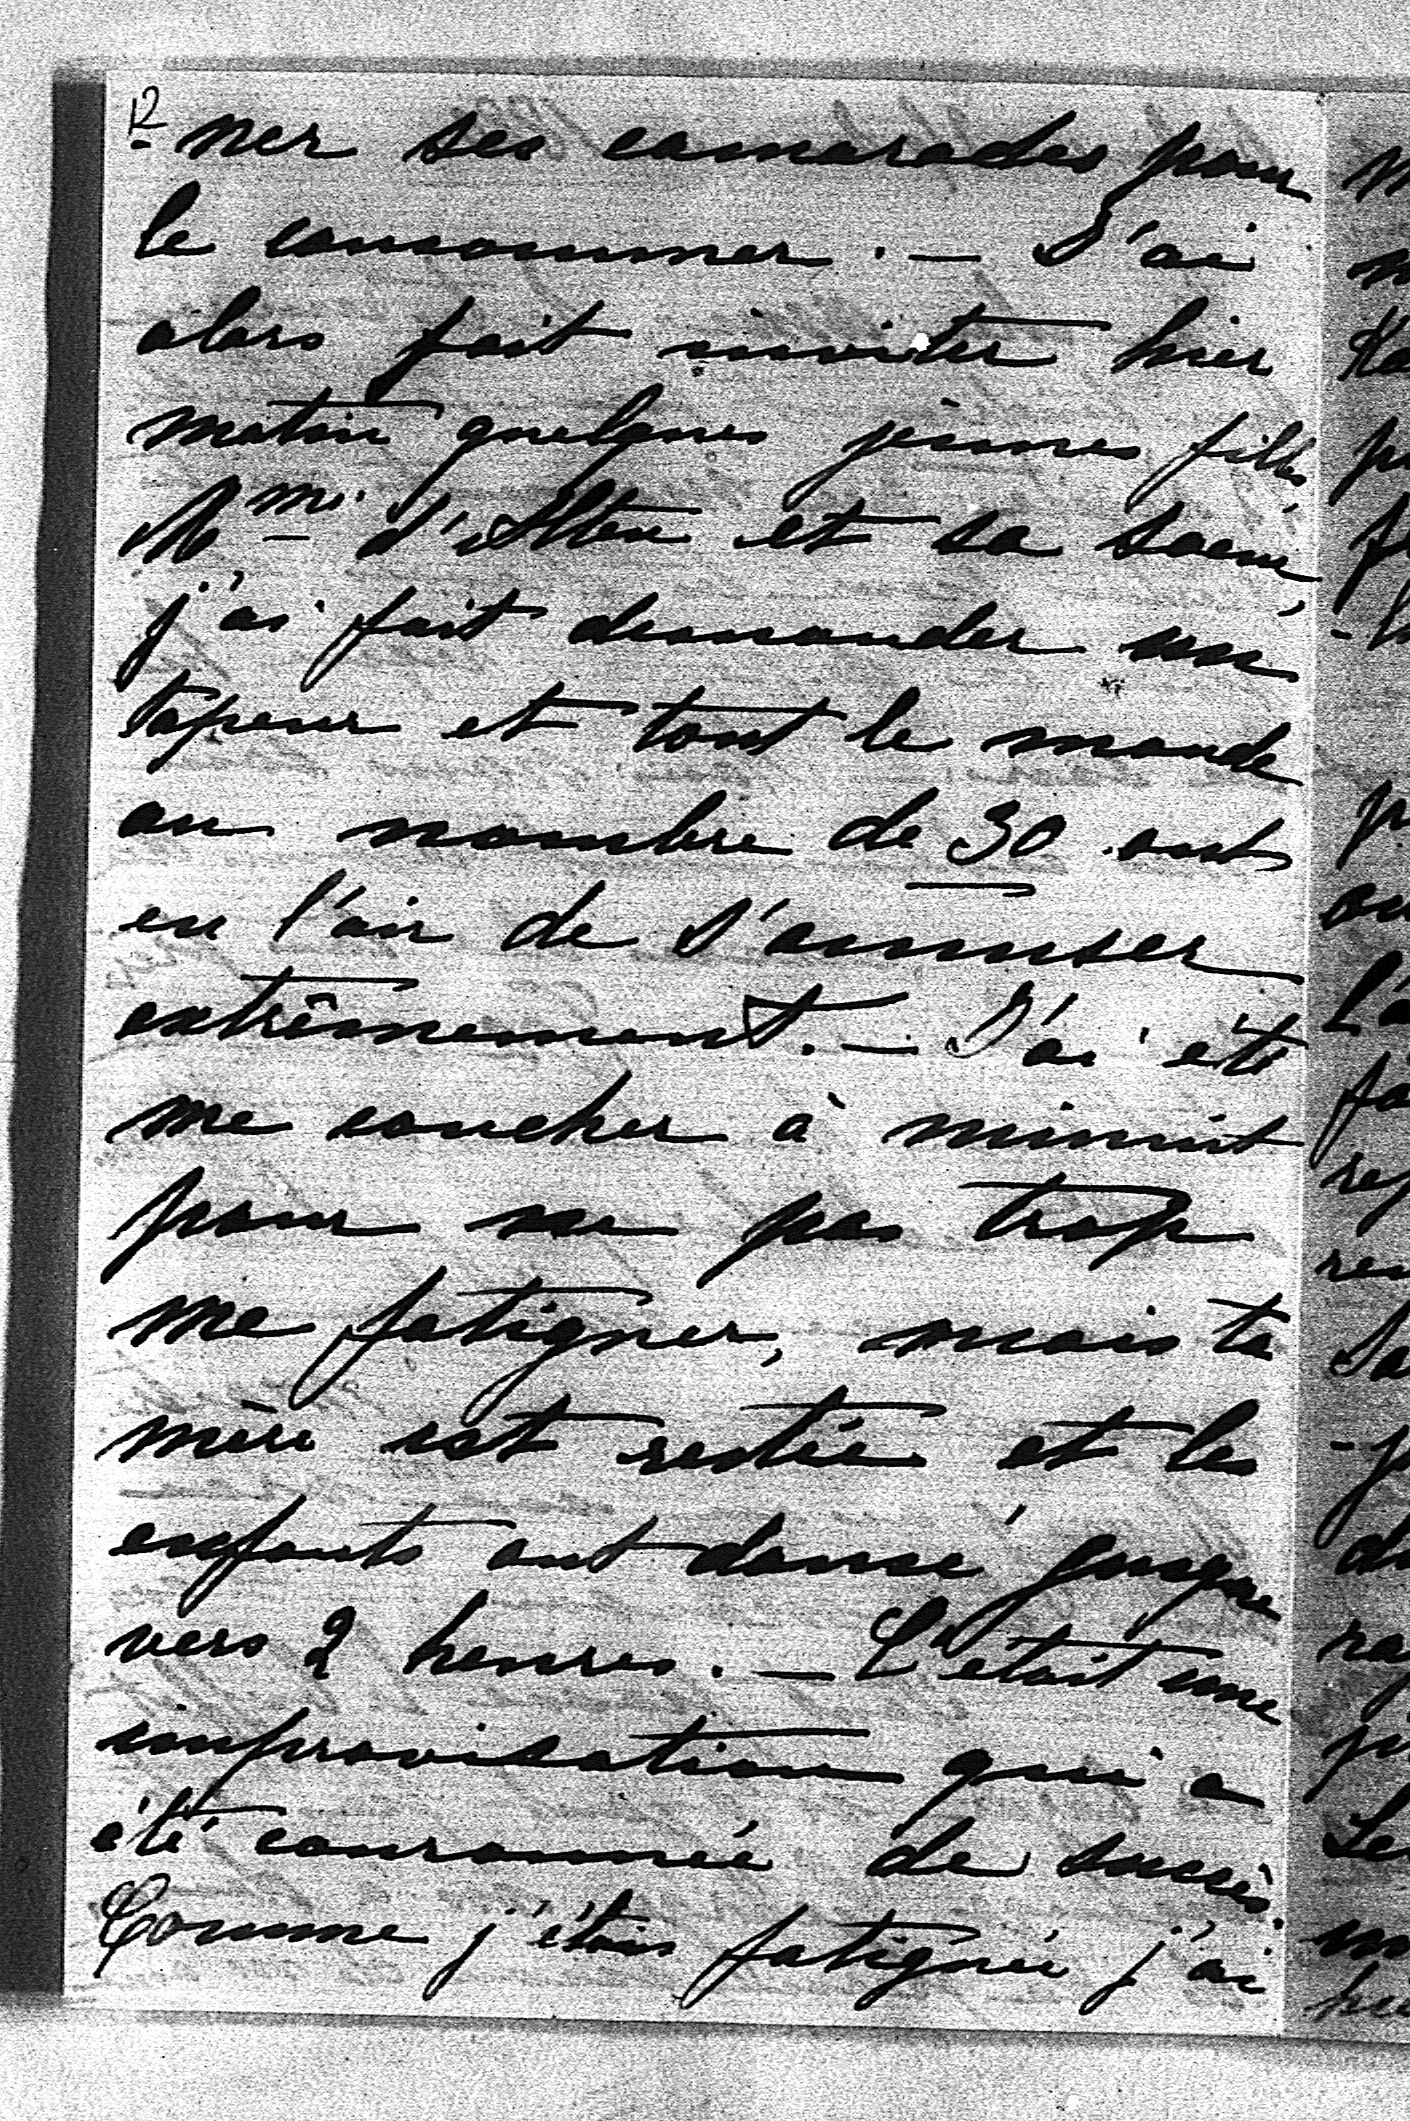 12
- ner ses camarades pour
le consommer. — J'ai
alors fait inviter hier
matin quelques jeunes filles
Mme d'Etten et sa soeur,
j'ai fait demander un
tapeur et tout le monde
au nombre de 30 ont
eu l'air de s'amuser
extrêmement. — J'ai été
me coucher à minuit
pour ne pas trop
me fatiguer, mais ta
mère est restée et les
enfants ont dansé jusque
vers 2 heures. — C'était une
improvisation qui a
été couronnée de succès.
Comme j'étais fatiguée j'ai